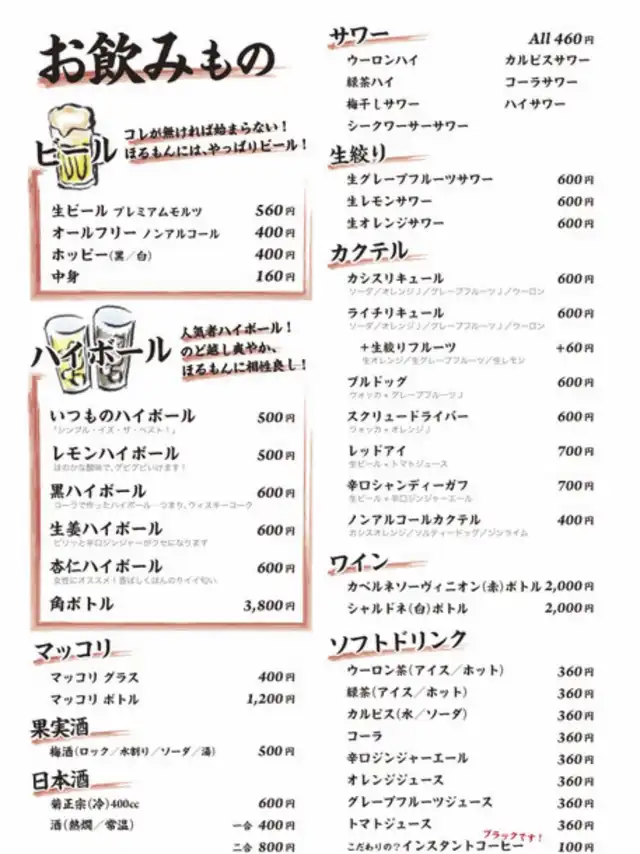 お飲みもの
ビール
コレが無ければ始まらない！
ほるもんには、やっぱりビール！
生ビール プレミアムモルツ 560円
オールフリー ノンアルコール 400円
ホッピー(黒／白) 400円
中身 160円
ハイボール
人気者ハイボール！
のど越し爽やか、
ほるもんに相性良し！
いつものハイボール 500円
「シンプル・イズ・ザ・ベスト！」
レモンハイボール 500円
ほのかな酸味で、グビグビいけます！
黒ハイボール 600円
コーラで作ったハイボール…つまり、ウィスキーコーク
生姜ハイボール 600円
ピリッと辛口ジンジャーがクセになります
杏仁ハイボール 600円
女性にオススメ！香ばしくほんのりイイ匂い
角ボトル 3,800円
マッコリ
マッコリ グラス 400円
マッコリ ボトル 1,200円
果実酒
梅酒(ロック／水割り／ソーダ／湯) 500円
日本酒
菊正宗(冷)400cc 600円
酒(熱燗／常温) 一合 400円
二合 800円
サワー All 460円
ウーロンハイ カルピスサワー
緑茶ハイ コーラサワー
梅干しサワー ハイサワー
シークワーサーサワー
生絞り
生グレープフルーツサワー 600円
生レモンサワー 600円
生オレンジサワー 600円
カクテル
カシスリキュール 600円
ソーダ／オレンジJ／グレープフルーツJ／ウーロン
ライチリキュール 600円
ソーダ／オレンジJ／グレープフルーツJ／ウーロン
＋生絞りフルーツ +60円
生オレンジ／生グレープフルーツ／生レモン
ブルドッグ 600円
ウォッカ＋グレープフルーツJ
スクリュードライバー 600円
ウォッカ＋オレンジJ
レッドアイ 700円
生ビール＋トマトジュース
辛口シャンディーガフ 700円
生ビール＋辛口ジンジャーエール
ノンアルコールカクテル 400円
カシスオレンジ／ソルティードッグ／ジンライム
ワイン
カベルネソーヴィニオン(赤)ボトル 2,000円
シャルドネ(白)ボトル 2,000円
ソフトドリンク
ウーロン茶(アイス／ホット) 360円
緑茶(アイス／ホット) 360円
カルピス(水／ソーダ) 360円
コーラ 360円
辛口ジンジャーエール 360円
オレンジジュース 360円
グレープフルーツジュース 360円
トマトジュース 360円
ブラックです！
こだわりの？インスタントコーヒー 100円